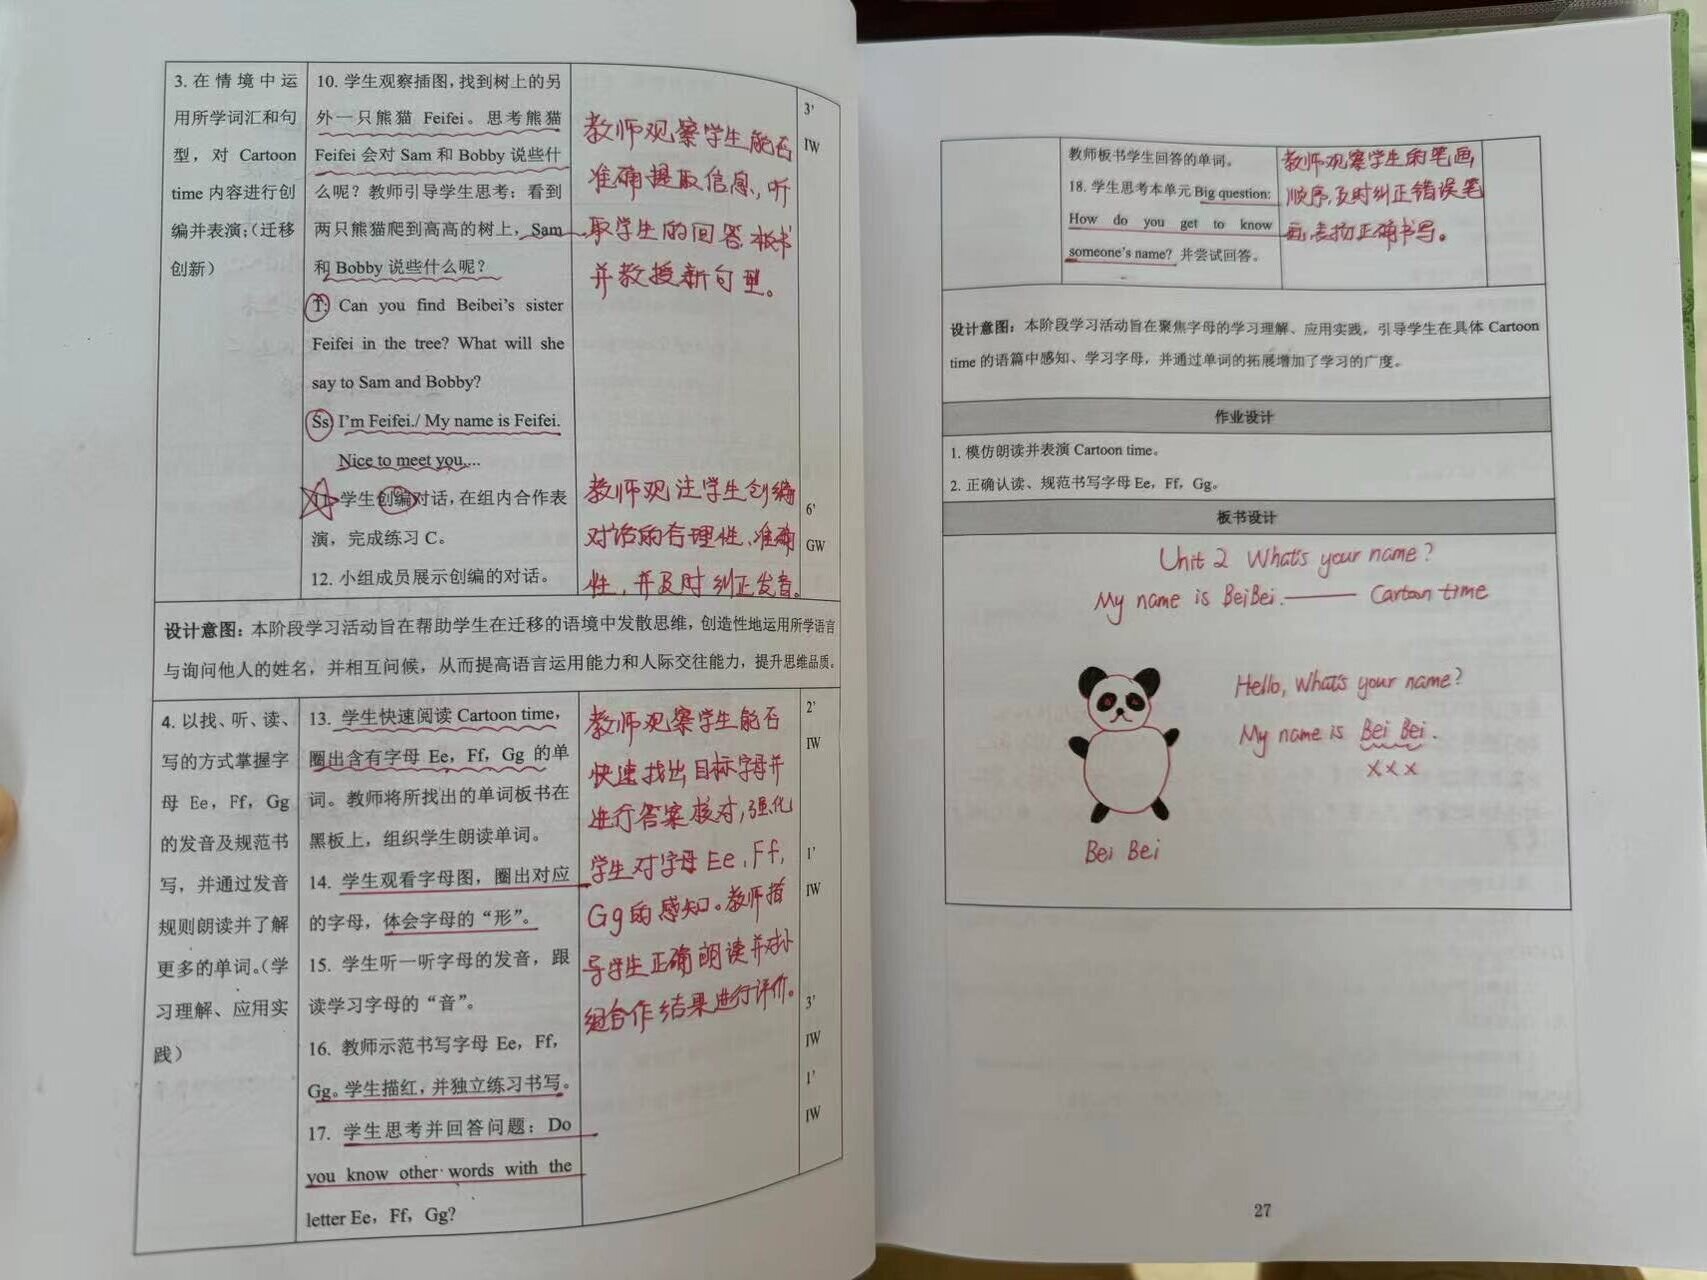 3. 在情境中运
用所学词汇和句
型，对 Cartoon
time 内容进行创
编并表演；（迁移
创新）
10. 学生观察插图，找到树上的另
外一只熊猫 Feifei。思考熊猫
Feifei 会对 Sam 和 Bobby 说些什
么呢？教师引导学生思考：看到
两只熊猫爬到高高的树上，Sam
和 Bobby 说些什么呢？
T: Can you find Beibei's sister
Feifei in the tree? What will she
say to Sam and Bobby?
Ss: I'm Feifei./ My name is Feifei.
Nice to meet you....
11. 学生创编对话，在组内合作表
演，完成练习 C。
12. 小组成员展示创编的对话。
教师观察学生能否
准确提取信息，听
取学生的回答板书
并教授新句型。
教师观注学生创编
对话的合理性、准确
性，并及时纠正发音。
3'
IW
6'
GW
设计意图：本阶段学习活动旨在帮助学生在迁移的语境中发散思维，创造性地运用所学语言
与询问他人的姓名，并相互问候，从而提高语言运用能力和人际交往能力，提升思维品质。
4. 以找、听、读、
写的方式掌握字
母 Ee，Ff，Gg
的发音及规范书
写，并通过发音
规则朗读并了解
更多的单词。（学
习理解、应用实
践）
13. 学生快速阅读 Cartoon time，
圈出含有字母 Ee，Ff，Gg 的单
词。教师将所找出的单词板书在
黑板上，组织学生朗读单词。
14. 学生观看字母图，圈出对应
的字母，体会字母的“形”。
15. 学生听一听字母的发音，跟
读学习字母的“音”。
16. 教师示范书写字母 Ee，Ff，
Gg。学生描红，并独立练习书写。
17. 学生思考并回答问题：Do
you know other words with the
letter Ee，Ff，Gg?
教师观察学生能否
快速找出目标字母并
进行答案核对，强化
学生对字母Ee，Ff，
Gg的感知。教师指
导学生正确朗读并对小
组合作结果进行评价。
2'
IW
1'
IW
3'
IW
1'
IW
教师板书学生回答的单词。
18. 学生思考本单元 Big question:
How do you get to know
someone's name? 并尝试回答。
教师观察学生的笔画
顺序，及时纠正错误笔
画，表扬正确书写。
设计意图：本阶段学习活动旨在聚焦字母的学习理解、应用实践，引导学生在具体 Cartoon
time 的语篇中感知、学习字母，并通过单词的拓展增加了学习的广度。
作业设计
1. 模仿朗读并表演 Cartoon time。
2. 正确认读、规范书写字母 Ee，Ff，Gg。
板书设计
Unit 2 What's your name?
My name is BeiBei. —— Cartoon time
Hello, What's your name?
My name is Bei Bei.
×××
Bei Bei
27